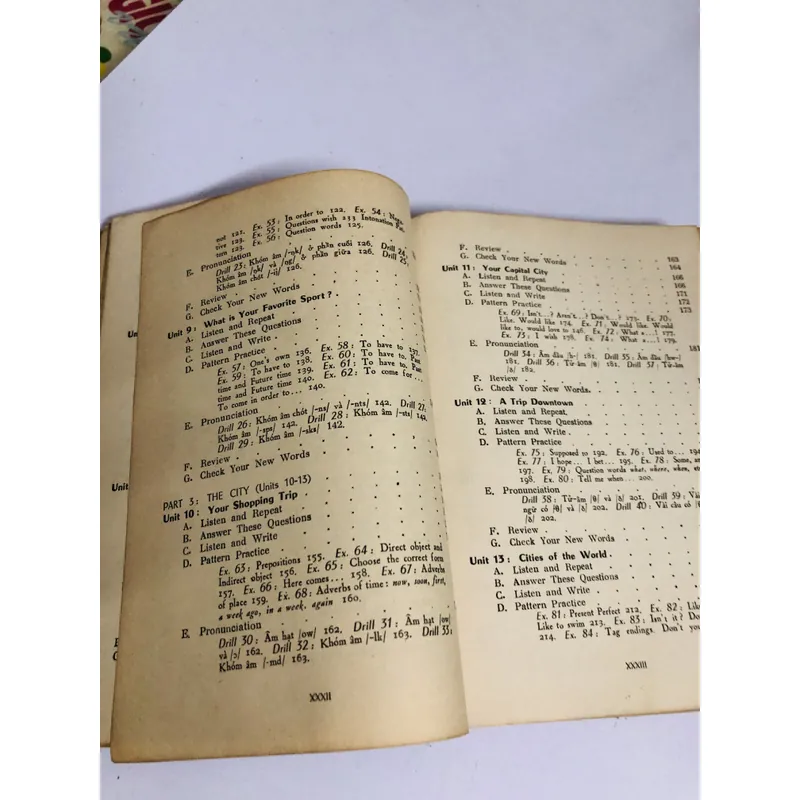 not 121. Ex. 53: In order to 122. Ex. 54: Nega-
tive 123. Ex. 55: Questions with 233 Intonation Pat-
tern 123. Ex. 56: Question words 125.
E. Pronunciation
Drill 23: Khóm âm /-ŋk/ ở phần cuối 126. Drill 24:
Khóm âm /ŋk/ và /ŋg/ ở phần giữa 126. Drill 25:
Khóm âm chót /-il/ 126.
F. Review
G. Check Your New Words
Unit 9: What is Your Favorite Sport?
A. Listen and Repeat
B. Answer These Questions
C. Listen and Write
D. Pattern Practice
Ex. 57: One's own 136. Ex. 58: To have to 137.
Ex. 59: To have to 138. Ex. 60: To have to, Past
time and Future time 139. Ex. 61: To have to, Past
time and Future time 140. Ex. 62: To come for...
To come in order to... 140.
E. Pronunciation
Drill 26: Khóm âm chót /-ns/ và /-nts/ 142. Drill 27:
Khóm âm /-sps/ 142. Drill 28: Khóm âm /-sts/ 142.
Drill 29: Khóm âm /-sks/ 142.
F. Review
G. Check Your New Words
PART 3: THE CITY (Units 10-13)
Unit 10: Your Shopping Trip
A. Listen and Repeat
B. Answer These Questions
C. Listen and Write
D. Pattern Practice
Ex. 63: Prepositions 155. Ex. 64: Direct object and
Indirect object 156. Ex. 65: Choose the correct form
157. Ex. 66: Here comes... 158. Ex. 67: Adverbs
of place 159. Ex. 68: Adverbs of time: now, soon, first,
a week ago, in a week, again 160.
E. Pronunciation
Drill 30: Âm hạt /ow/ 162. Drill 31: Âm hạt /ow/
và /ɔ/ 162. Drill 32: Khóm âm /-lk/ 163. Drill 33:
Khóm âm /-md/ 163.
XXXII
F. Review 163
G. Check Your New Words 164
Unit 11: Your Capital City 166
A. Listen and Repeat 166
B. Answer These Questions 171
C. Listen and Write 172
D. Pattern Practice 173
Ex. 69: Isn't...? Aren't...? Don't...? 173. Ex. 70:
Like. Would like 174. Ex. 71: Would like. Would
like to, would love to 246. Ex. 72: What a...! 177.
Ex. 73: I wish 178. Ex. 74: What a...! 179.
E. Pronunciation 181
Drill 34: Âm đầu /h-/ 181. Drill 35: Âm đầu /hw-/
181. Drill 36: Tử-âm /θ/ 181. Drill 37: Tử-âm
/ð/ 182.
F. Review
G. Check Your New Words.
Unit 12: A Trip Downtown
A. Listen and Repeat.
B. Answer These Questions
C. Listen and Write.
D. Pattern Practice
Ex. 75: Supposed to 192. Ex. 76: Used to... 194
Ex. 77: I hope... I bet... 195. Ex. 78: Some, an
197. Ex. 79: Question words what, where, when, etc
198. Ex. 80: Tell me when... 200.
E. Pronunciation
Drill 38: Tử-âm /θ/ và /ð/ 201. Drill 39: Vài
ngữ có /θ/ và /ð/ 202. Drill 40: Vài câu có /θ/
/ð/ 202.
F. Review
G. Check Your New Words
Unit 13: Cities of the World.
A. Listen and Repeat
B. Answer These Questions
C. Listen and Write
D. Pattern Practice
Ex. 81: Present Perfect 212. Ex. 82: Like
Like to swim 213. Ex. 83: Isn't it? Do
214. Ex. 84: Tag endings. Don't you
XXXIII
Unit
Unit